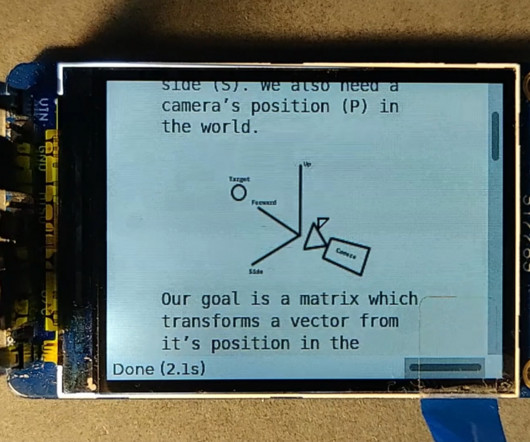 side (S). We also need a
camera's position (P) in
the world.
Up
Target
Forward
Camera
Side
Our goal is a matrix which
transforms a vector from
it's position in the
Done (2.1s)
VIN
GND